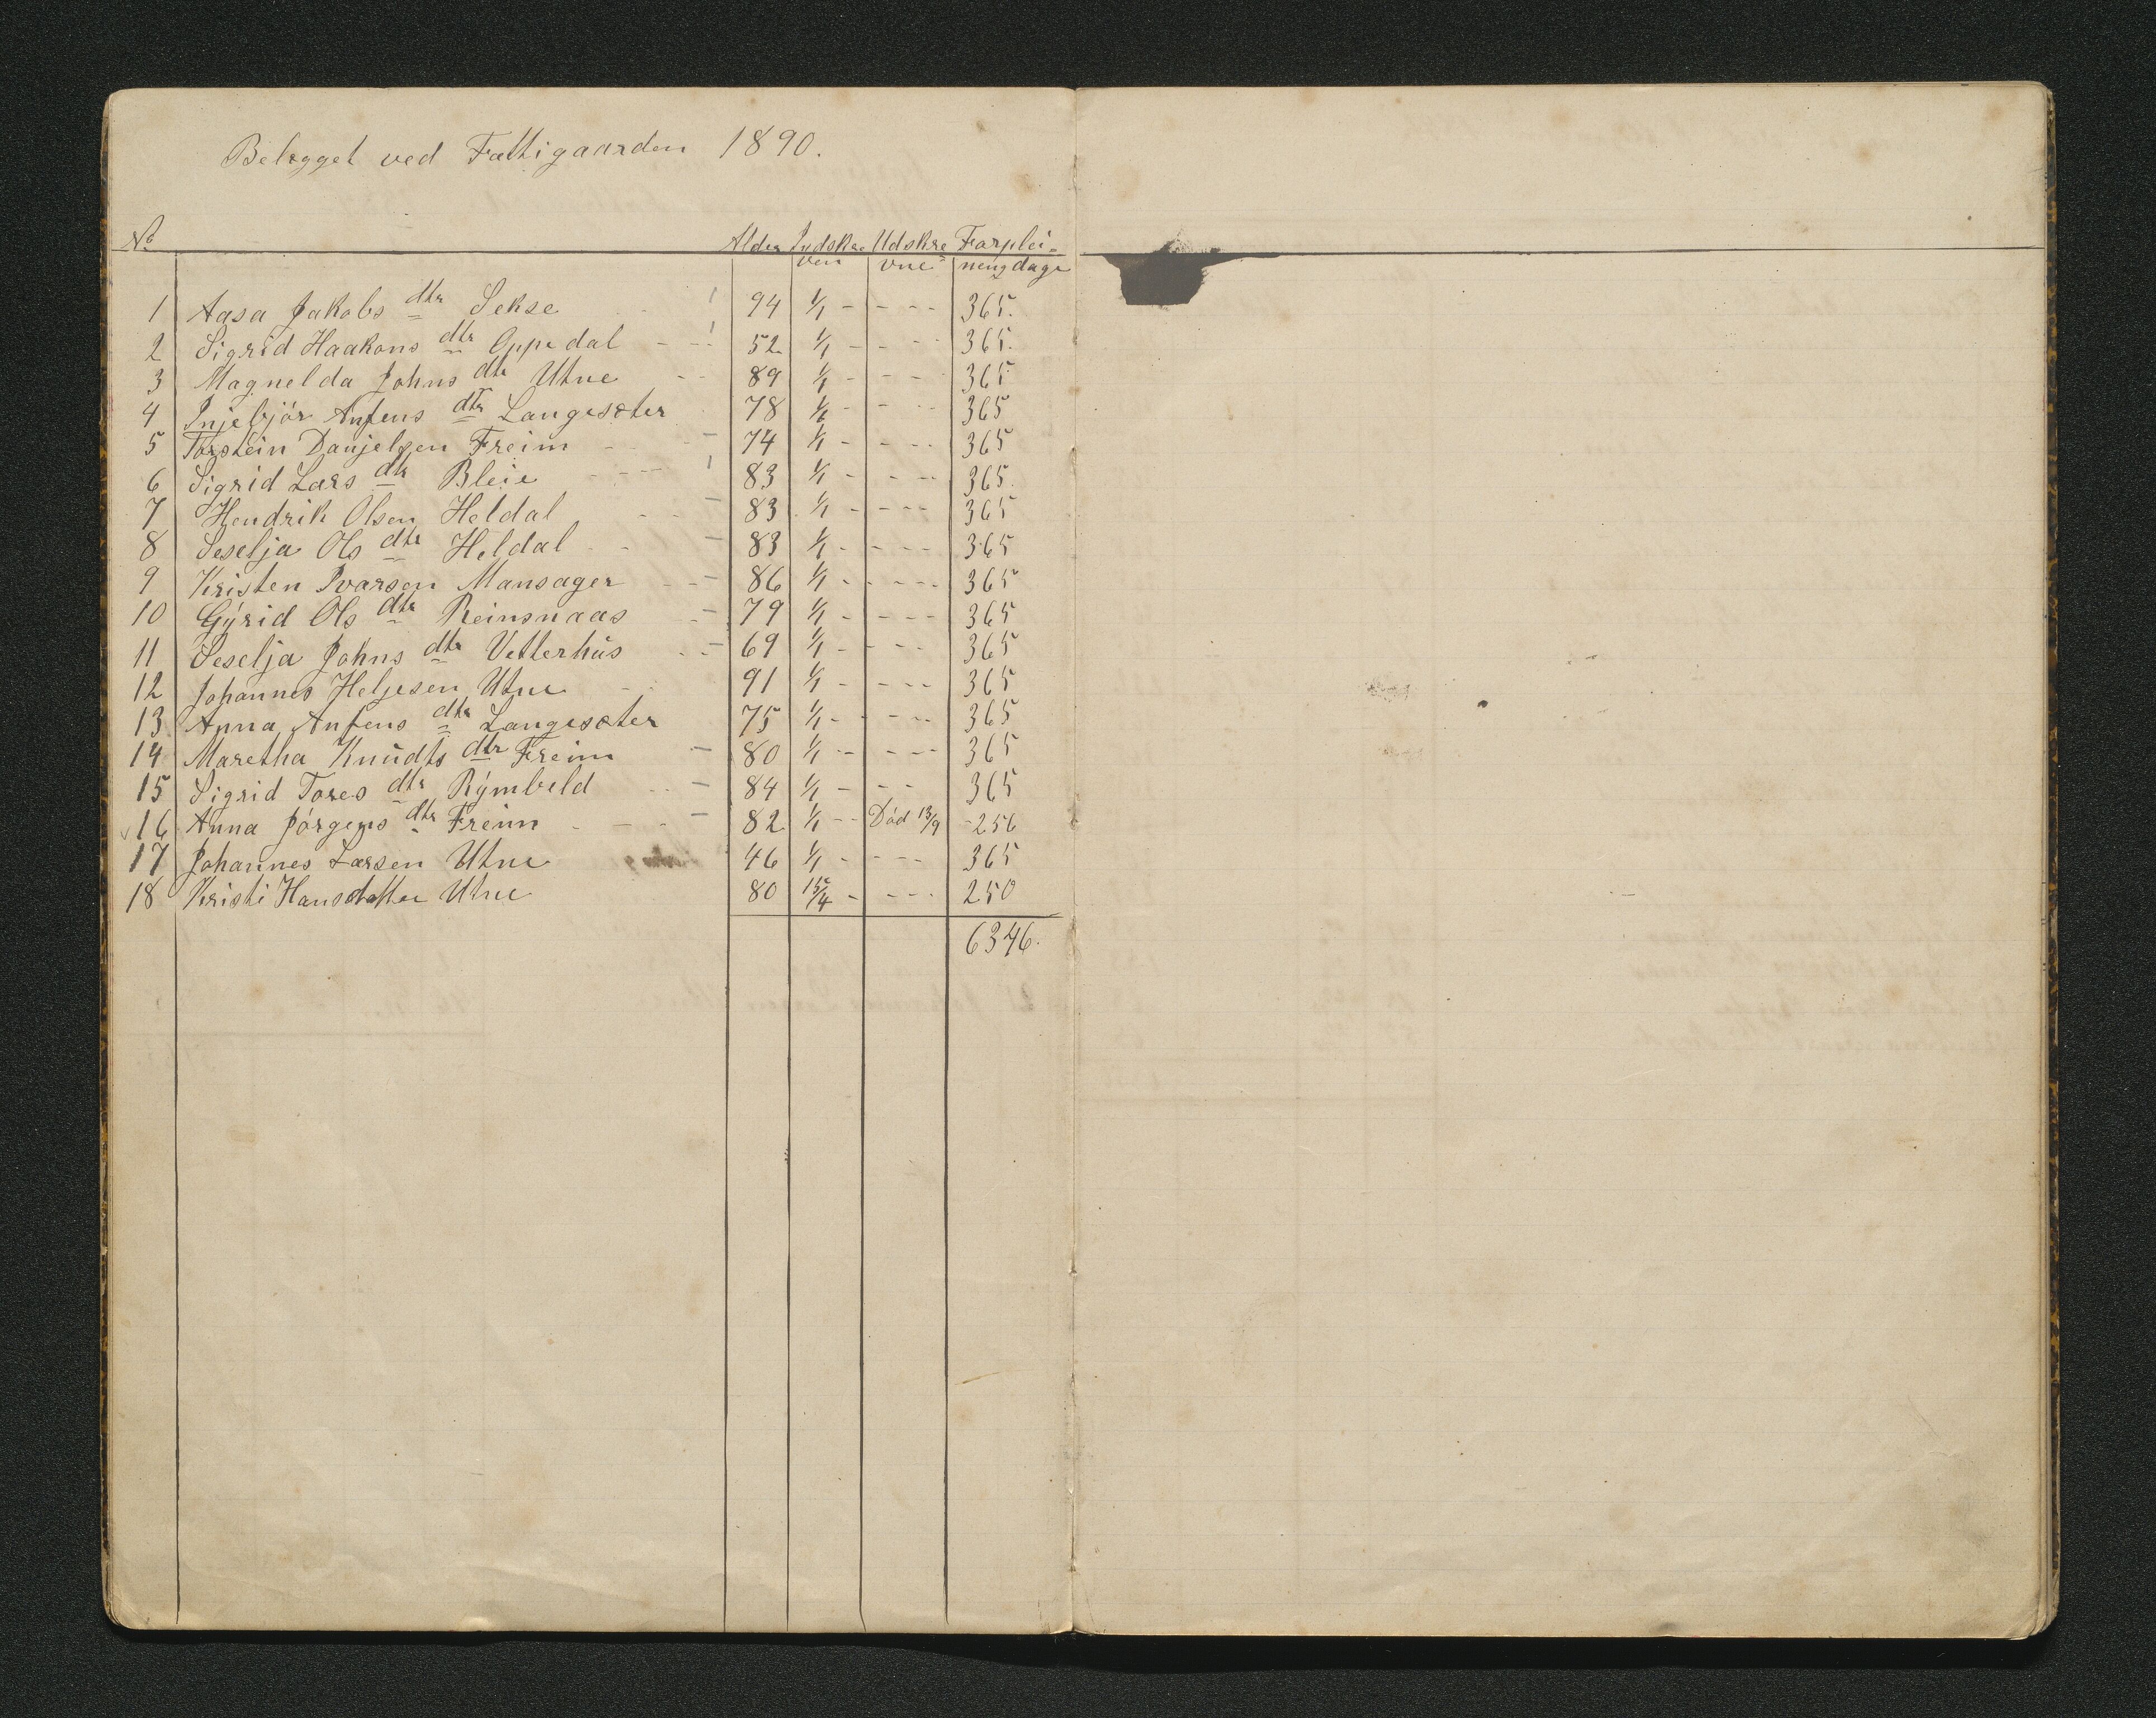 Belegget ved Fattigaarden 1890.
No Alder Indskre- Udskre Forplei-
ven vne neing dage
1 Aasa Jakobs dtr Sekse 94 1/1 - - - - 365.
2 Sigrid Haakons dtr Oppedal - - - 52 1/1 - - - - 365.
3 Magnelda Johns dtr Utne - - 89 1/1 - - - - 365
4 Injebjör Anfens dtr Langesæter 78 1/1 - - - - 365
5 Torstein Danjelsen Freim - - - 74 1/1 - - - - 365
6 Sigrid Lars dtr Bleie - - - 83 1/1 - - - - 365.
7 Hendrik Olsen Heldal - - - 83 1/1 - - - - 365
8 Seselja Ols dtr Heldal - - - 83 1/1 - - - - 365
9 Kristen Ivarsen Mansager - - - 86 1/1 - - - - 365
10 Gÿrid Ols dtr Reinsnaas - - 79 1/1 - - - - 365
11 Seselja Johns dtr Vetterhŭs - - - 69 1/1 - - - - 365
12 Johannes Heljesen Utne - - 91 1/1 - - - - 365
13 Anna Anfens dtr Langesæter 75 1/1 - - - - 365
14 Maretha Knŭdts dtr Freim - 80 1/1 - - - - 365
15 Sigrid Tores dtr Rÿmbeld - - - 84 1/1 - - - 365
16 Anna Jörgens dtr Freim - - - - 82 1/1 - - Död 13/9 - 256
17 Johannes Larsen Utne 46 1/1 - - - - 365
18 Kristi Hansdatter Utne 80 15/4 - - - - 250
6346.